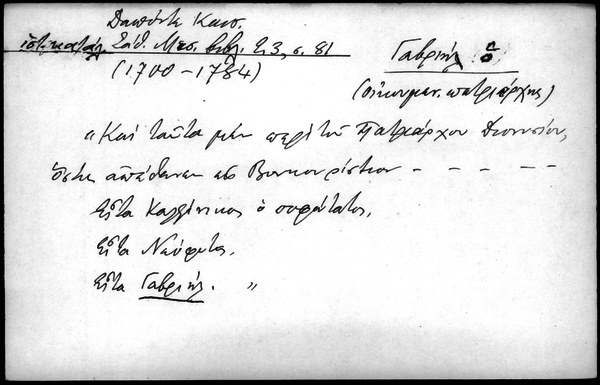 Δαπόντε Κωνσ.
ἱστ. κατάλ. Σάθ. Μεσ. βιβλ. τ. 3, σ. 81
(1700-1784)
Γαβριήλ
(οἰκουμεν. πατριάρχης)
"Καὶ ταῦτα μὲν περὶ τοῦ Πατριάρχου Διονυσίου,
ὅστις ἀπέθανεν εἰς Βουκουρέστιον - - - -
Εἶτα Καλλίνικος ὁ σοφώτατος,
Εἶτα Νεόφυτος,
Εἶτα Γαβριήλ. "